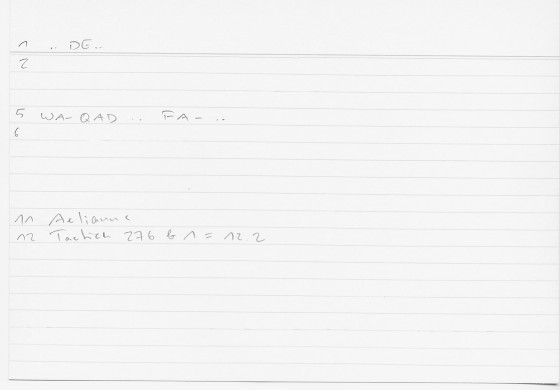 1 .. DE..
2
5 WA-QAD .. FA- ..
6
11 Aelianus
12 Tactica 276 b 1 = 12.2